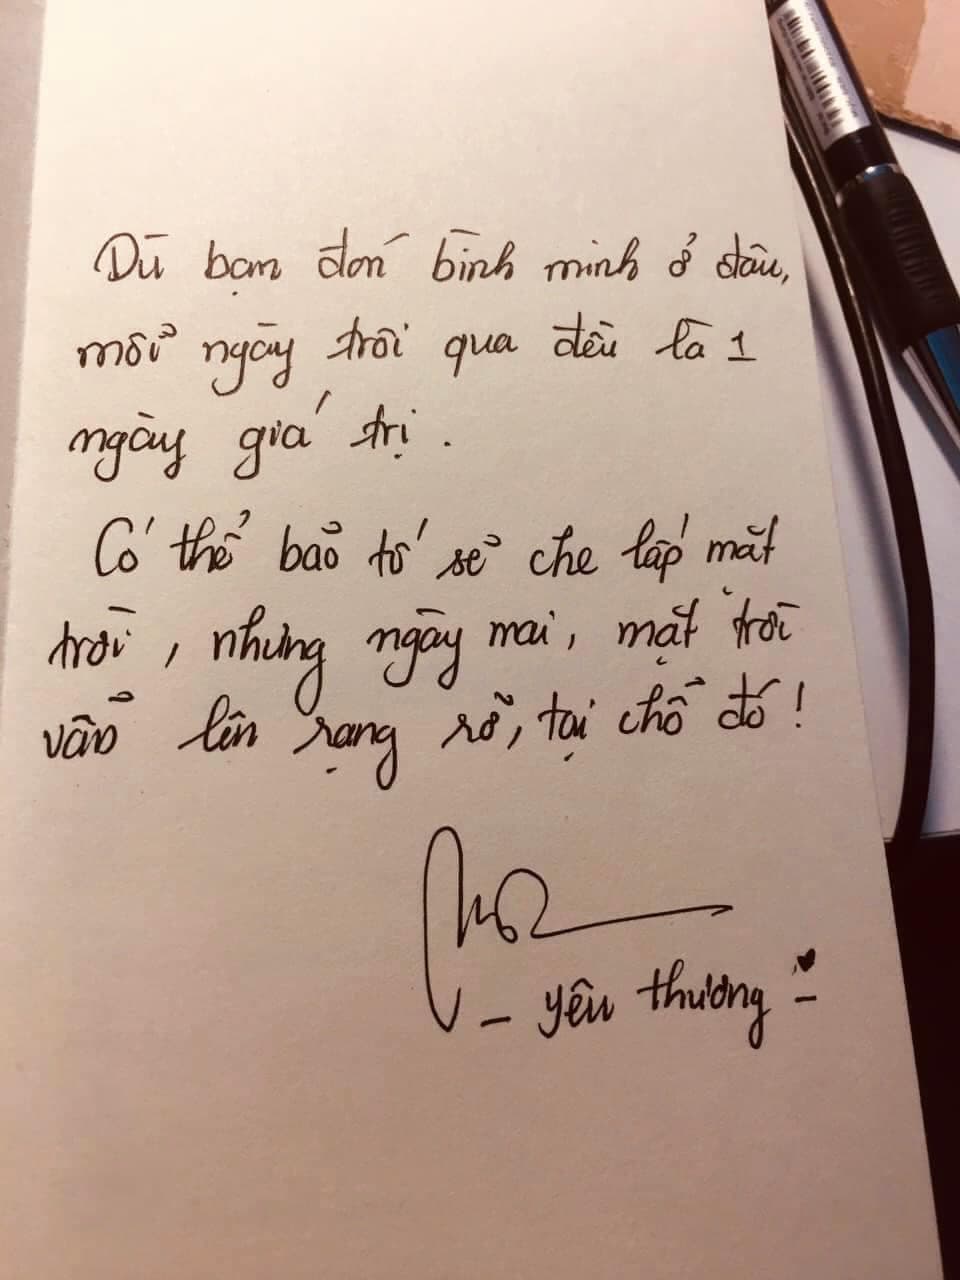 Dù bạn đón bình minh ở đâu,
mỗi ngày trôi qua đều là 1
ngày giá trị.
Có thể bảo tố sẻ che lấp mặt
trời, nhưng ngày mai, mặt trời
vẫn lên rạng rỡ, tại chổ đó!
- yêu thương -